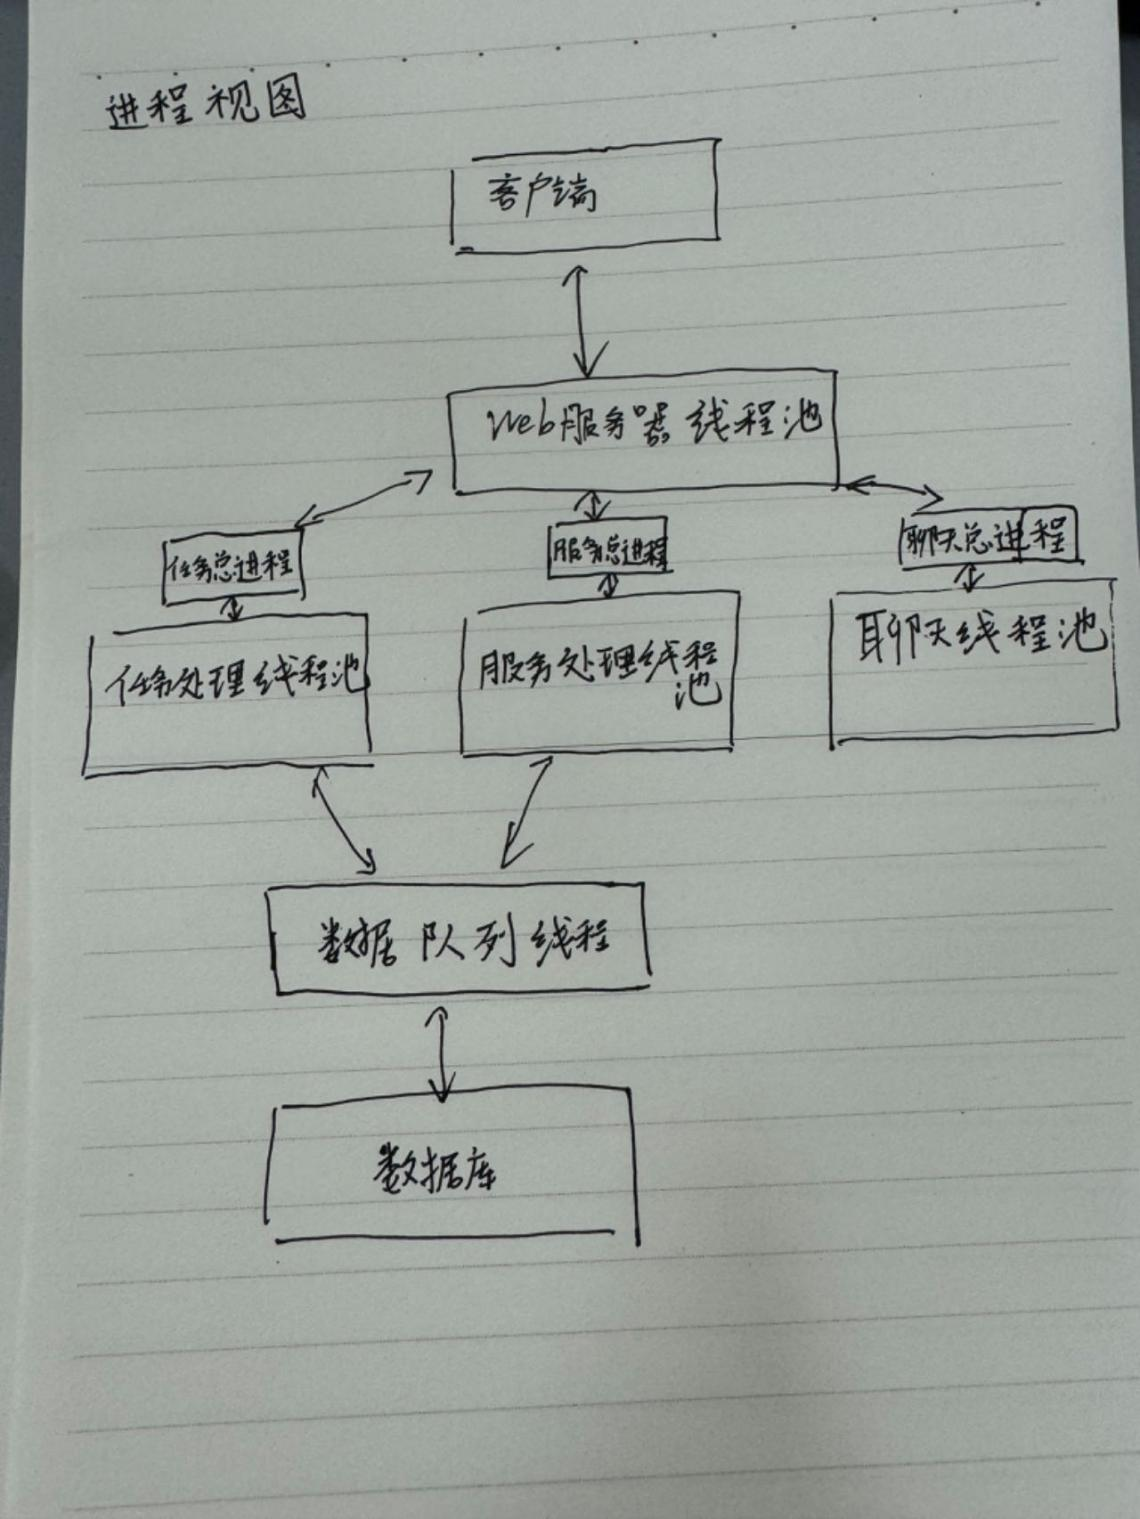 进程视图
客户端
Web服务器线程池
任务总进程
服务总进程
聊天总进程
任务处理线程池
服务处理线程
池
聊天线程池
数据队列线程
数据库